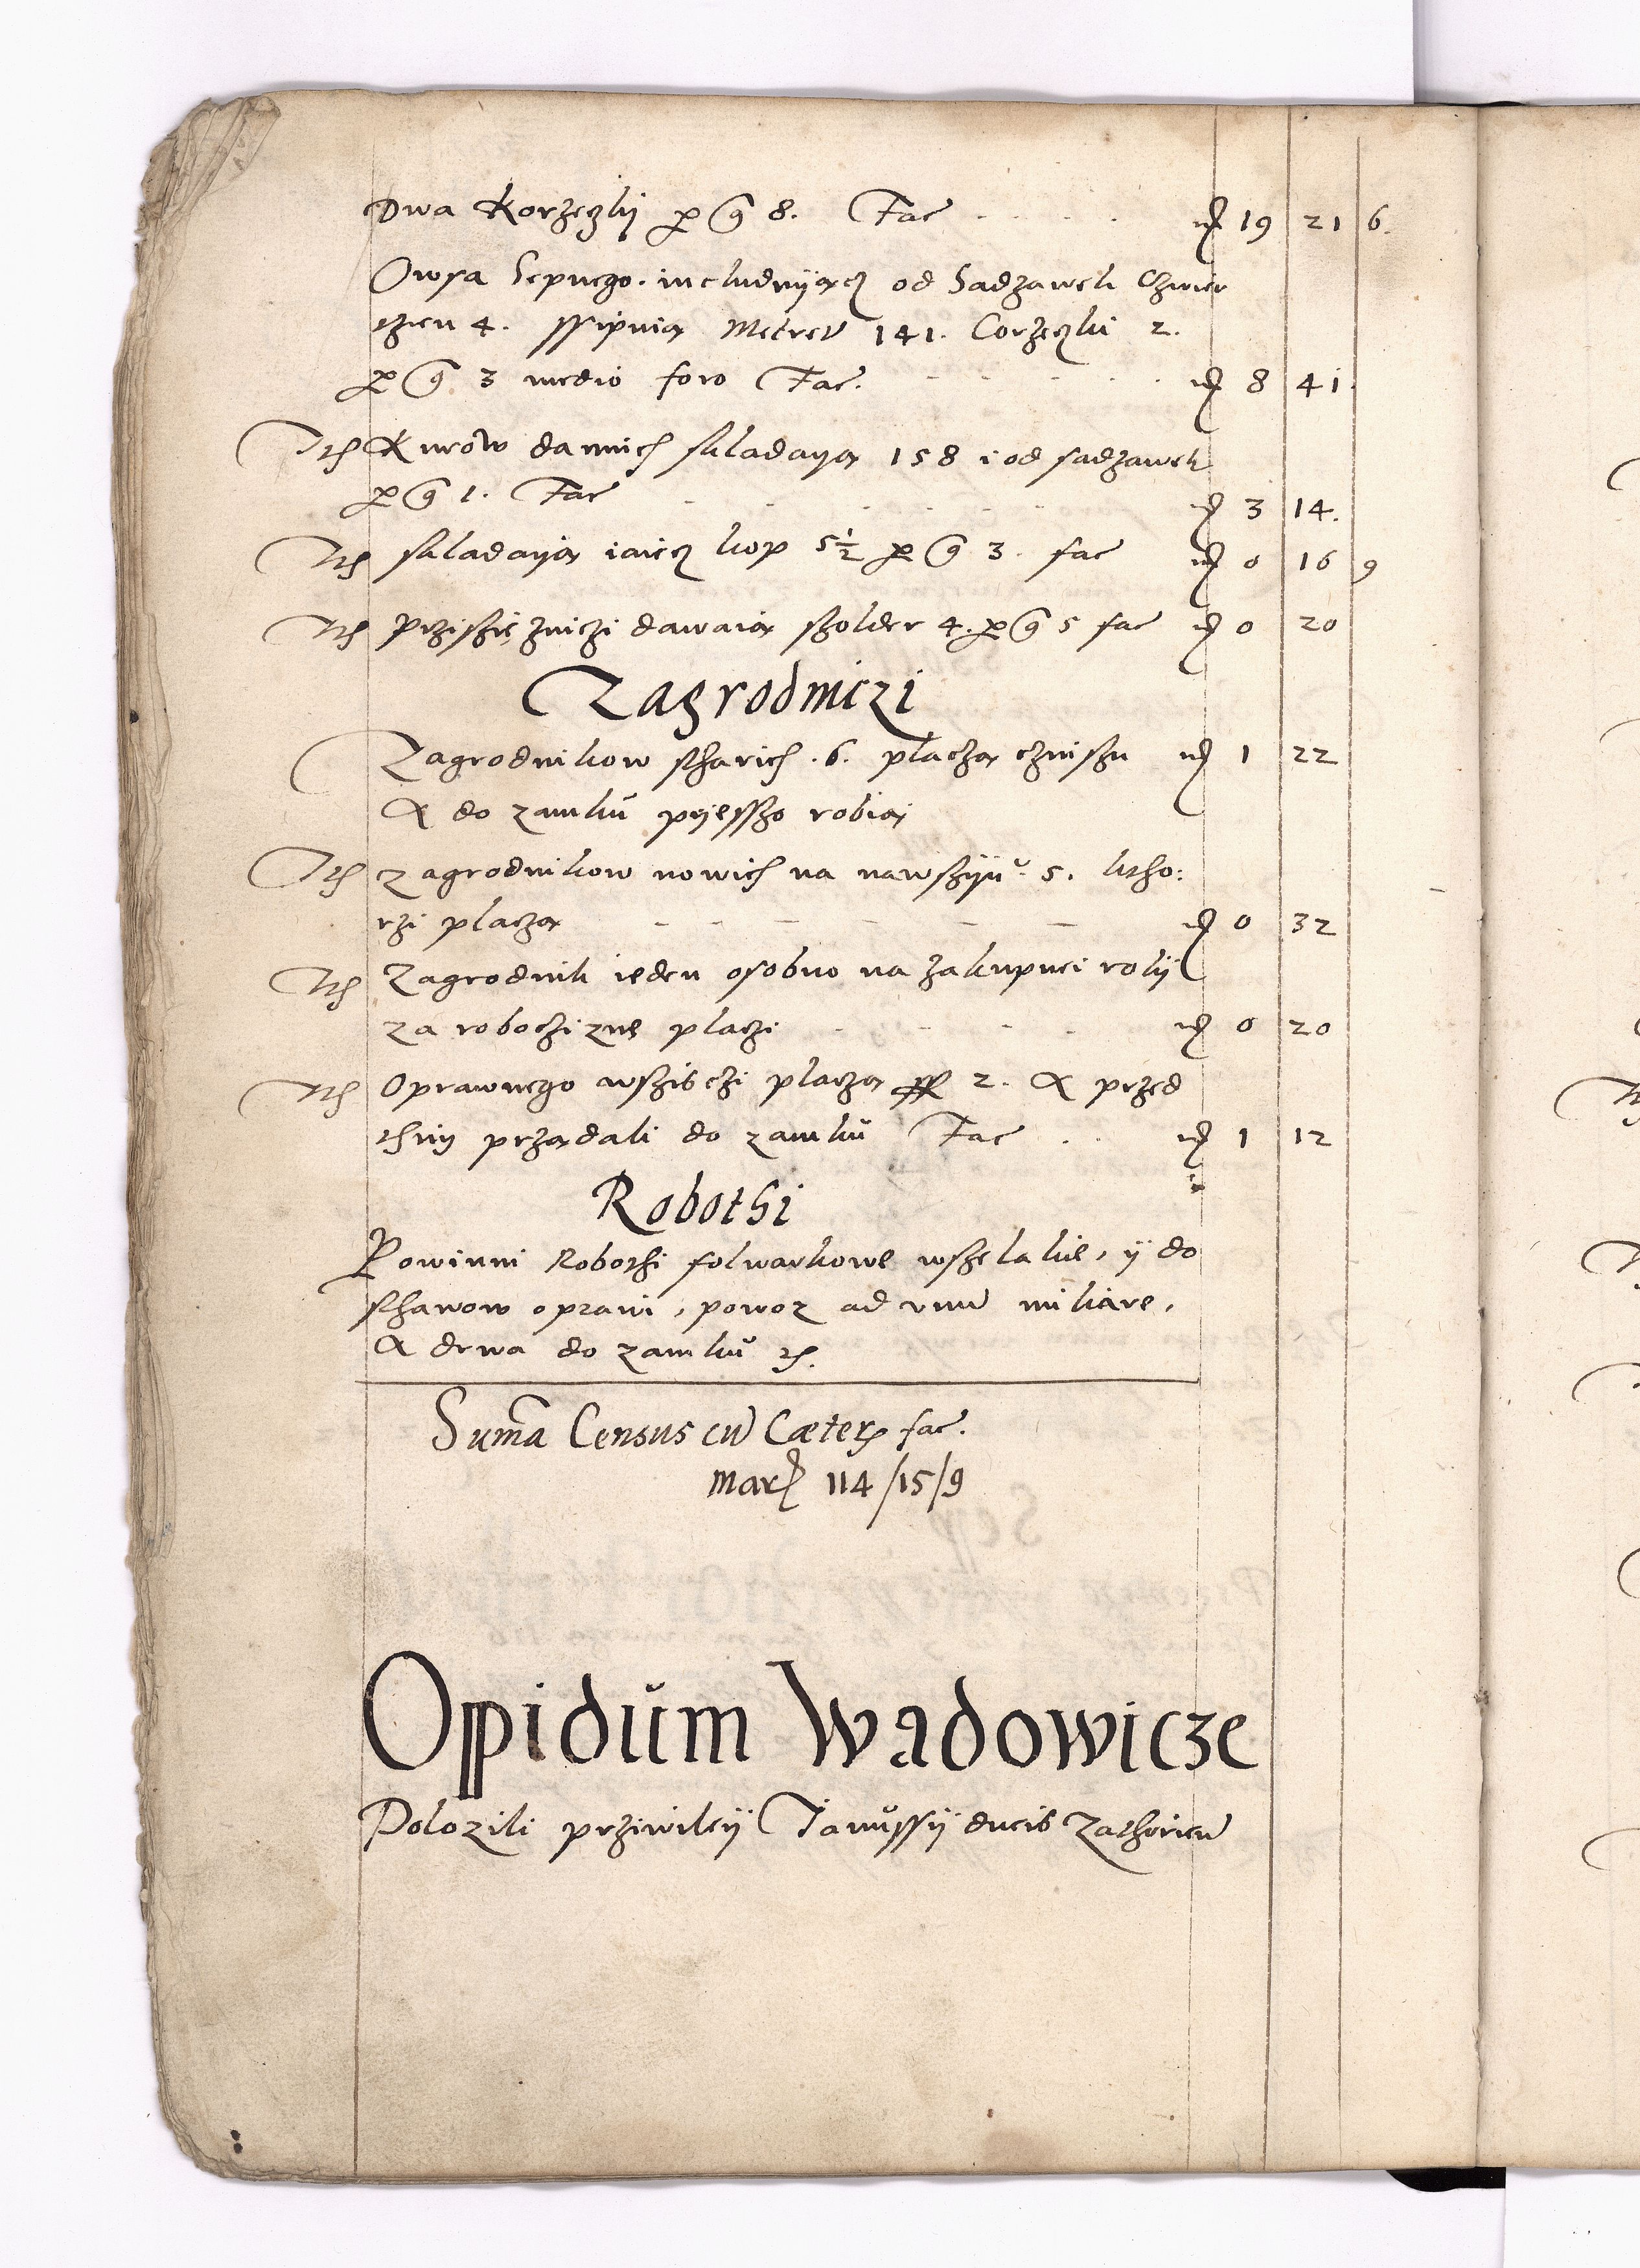 Dwa Korzeczky per gr 8. Fac m 19 21 6.
Owsa Sepnego. includuyącz od Sadzawek Czwier
tzien 4. ssipuią Metret 141. Corzeczki 2.
per gr 3 medio foro Fac. m 8 41.
Ite Kurow dannich składayą 158 i od sadzawek
per gr 1. Fac m 3 14.
Ite składayą iaiecz kop 5½ per gr 3. fac m 0 16 9
Ite Przisięzniczi dawaią szolder 4. per gr 5 fac m 0 20
Zagrodniczi
Zagrodnikow stharich .6. placzą czinszu m 1 22
A do zamku pyesszo robią
Ite zagrodnikow nowich na nawszyu 5. ktho:
rzi placzą m 0 32
Ite Zagrodnik ieden osobno na zakupnei roly
za robocziznę placzi m 0 20
Ite Oprawnego wszisczi placzą 2. A przed
thim przadali do zamku Fac m 1 12
Robothi
Powinni Robothi folwarkowe wszelakie, y do
sthawow oprawi, powoz ad unu miliare,
A drwa do zamku etc.
Suma Census cu Cæter fac.
Marc 114/15/9
Oppidum Wadowicze
Polozili prziwiley Janussy ducis Zathorien